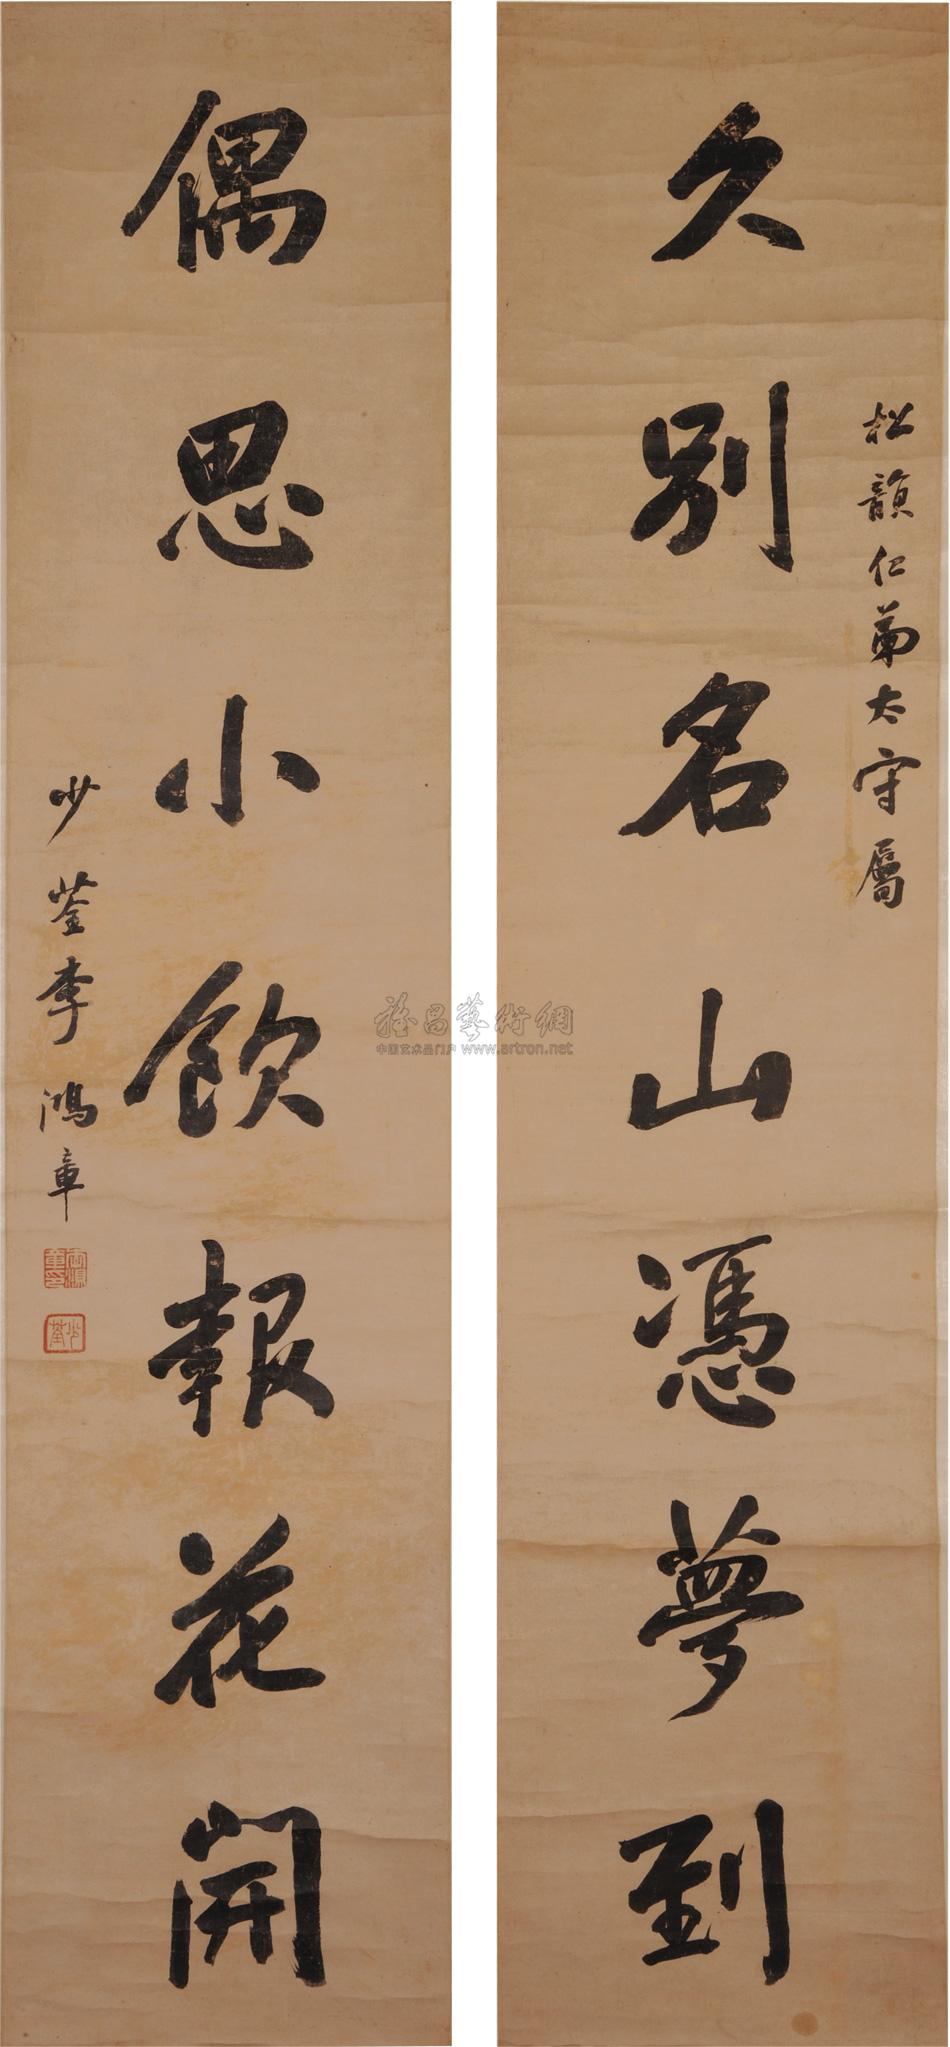 松韻仁弟太守屬
久别名山憑夢到
偶思小飲報花開
少荃李鴻章
少荃
雅昌藝術網
中国艺术品门户 www.artron.net